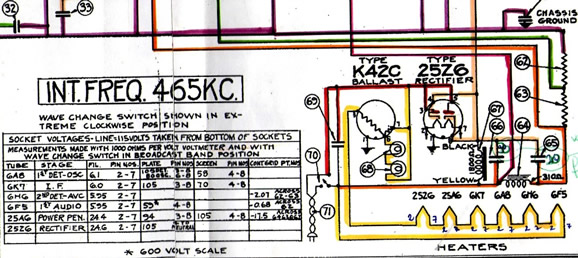 32
33
CHASSIS
GROUND
TYPE
K42C
BALLAST
TYPE
25Z6
RECTIFIER
62
63
INT. FREQ. 465KC.
WAVE CHANGE SWITCH SHOWN IN EX-
TREME CLOCKWISE POSITION
SOCKET VOLTAGES-LINE=115VOLTS TAKEN FROM BOTTOM OF SOCKETS
MEASUREMENTS MADE WITH 1000 OHMS PER VOLT VOLTMETER AND WITH
WAVE CHANGE SWITCH IN BROADCAST BAND POSITION
TUBE STAGE FIL PIN NOS. PLATE PIN NOS SCREEN PIN NOS CONT. GRID PT. NOS.
6A8 1ST DET-OSC 6.1 2-7 3-8 58 4-8
6K7 I.F. 6.0 2-7 105 3-8 70 4-8
6H6 2ND DET-AVC 5.95 2-7 -2.07 ACROSS
6F5 1ST AUDIO 5.95 2-7 55* 4-8 -0.68 ACROSS
25A6 POWER PEN. 24.4 2-7 94 3-8 105 4-8 -17.5 ACROSS
25Z6 RECTIFIER 24.6 2-7 105 NEUTRAL
* 600 VOLT SCALE
69
70
71
68
9
9
BLACK
YELLOW
67
66
64
65
310Ω
25Z6 25A6 6K7 6A8 6H6 6F5
HEATERS